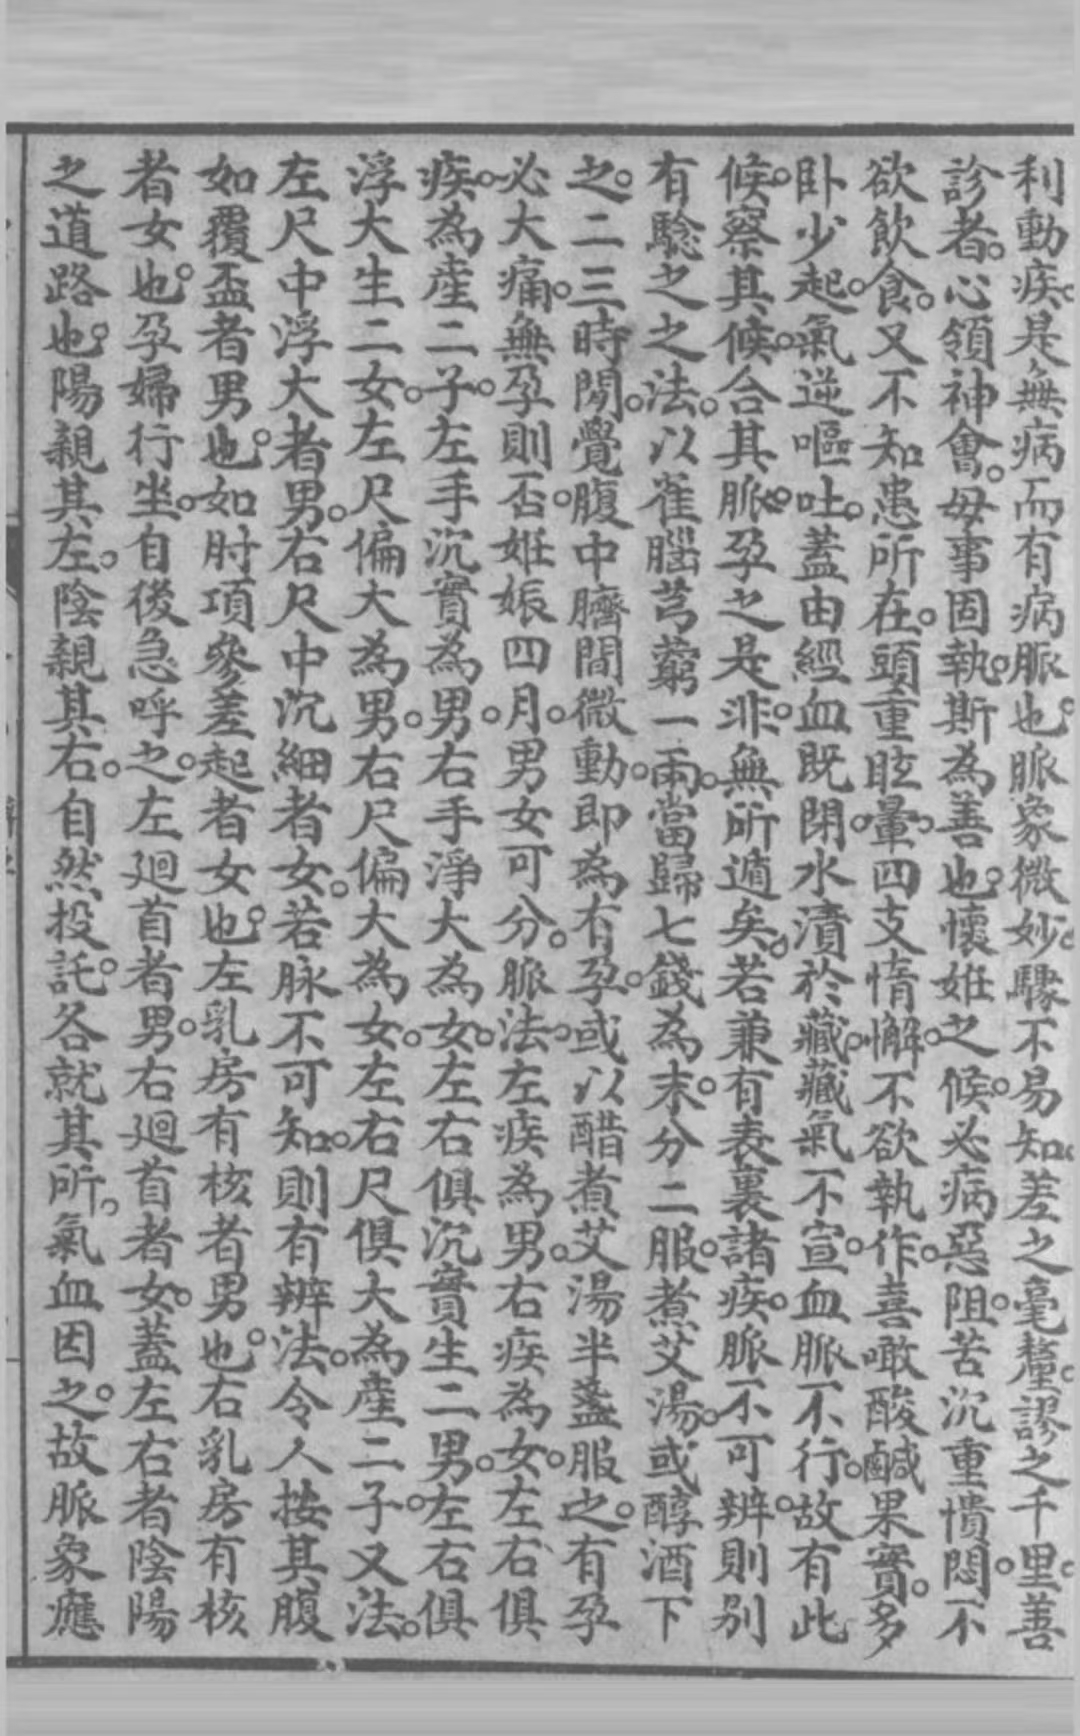 利動疾。是無病而有病脈也。脈象微妙。驟不易知。差之毫釐。謬之千里。善
診者。心領神會。毋事固執。斯為善也。懷姙之候。必病惡阻。苦沉重憒悶。不
欲飲食。又不知患所在。頭重眩暈。四支惰懈。不欲執作。喜噉酸鹹果實。多
卧少起。氣逆嘔吐。蓋由經血既閉。水漬於藏。藏氣不宣。血脈不行。故有此
候。察其候。合其脈。孕之是非。無所遁矣。若兼有表裏諸疾。脈不可辨。則別
有驗之之法。以雀腦芎藭一兩。當歸七錢為末。分二服。煮艾湯。或醇酒下
之。二三時間。覺腹中臍間微動。即為有孕。或以醋煮艾湯半盞服之。有孕
必大痛。無孕則否。姙娠四月。男女可分。脈法。左疾為男。右疾為女。左右俱
疾。為産二子。左手沉實為男。右手浮大為女。左右俱沉實生二男。左右俱
浮大生二女。左尺偏大為男。右尺偏大為女。左右尺俱大為産二子。又法。
左尺中浮大者男。右尺中沉細者女。若脉不可知。則有辨法。令人按其腹
如覆盃者男也。如肘項參差起者女也。左乳房有核者男也。右乳房有核
者女也。孕婦行坐。自後急呼之。左廻首者男。右廻首者女。蓋左右者陰陽
之道路也。陽親其左。陰親其右。自然投託。各就其所。氣血因之。故脈象應